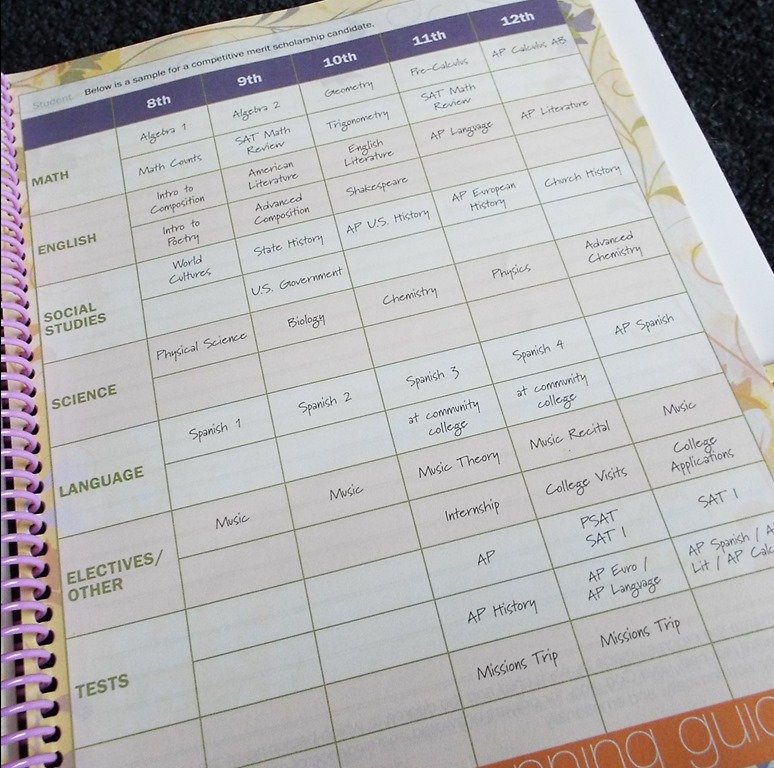 Student Below is a sample for a competitive merit scholarship candidate.
8th 9th 10th 11th 12th
MATH
Algebra 1 Algebra 2 Geometry Pre-Calculus AP Calculus AB
Math Counts SAT Math Review Trigonometry SAT Math Review
ENGLISH
Intro to Composition American Literature English Literature AP Language AP Literature
Intro to Poetry Advanced Composition Shakespeare
SOCIAL STUDIES
World Cultures State History AP U.S. History AP European History Church History
U.S. Government
SCIENCE
Physical Science Biology Chemistry Physics Advanced Chemistry
LANGUAGE
Spanish 1 Spanish 2 Spanish 3 Spanish 4 AP Spanish
at community college at community college
ELECTIVES/ OTHER
Music Music Music Theory Music Recital Music
Internship College Visits College Applications
TESTS
AP PSAT SAT 1 SAT 1
AP History AP Euro / AP Language AP Spanish / A Lit / AP Calc
Missions Trip Missions Trip
nning guid